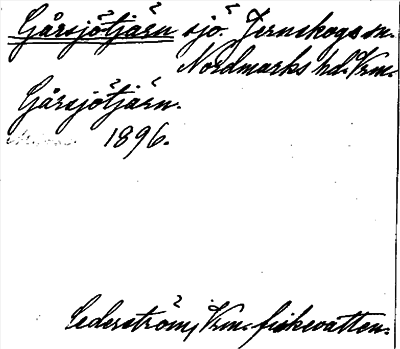 Gårsjötjärn sjö. Jernskogs sn.
Nordmarks hd. Vrm.
Gårsjötjärn.
1896.
Cederström, Vrm. fiskevatten.